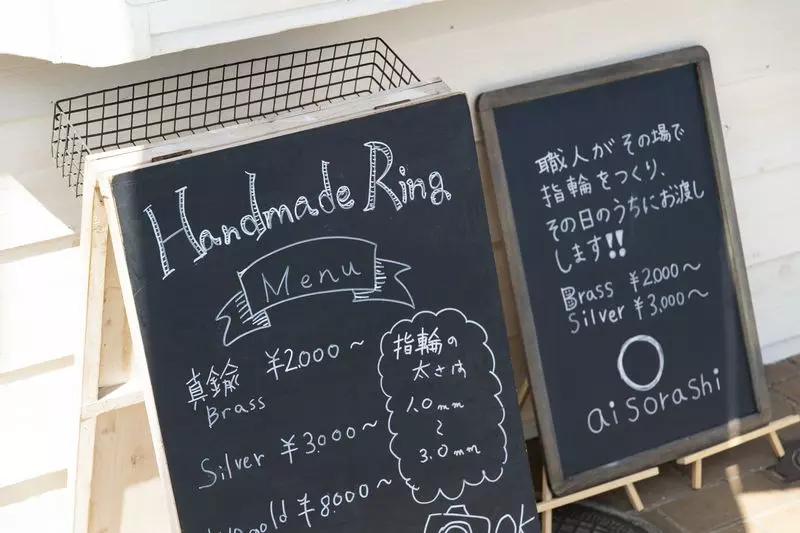 Handmade Ring
Menu
真鍮 ¥2000～
Brass
Silver ¥3.000～
gold ¥8000～
指輪の
太さは
1.0mm
～
3.0mm
OK
職人がその場で
指輪をつくり、
その日のうちにお渡し
します!!
Brass ¥2.000～
Silver ¥3.000～
aisorashi